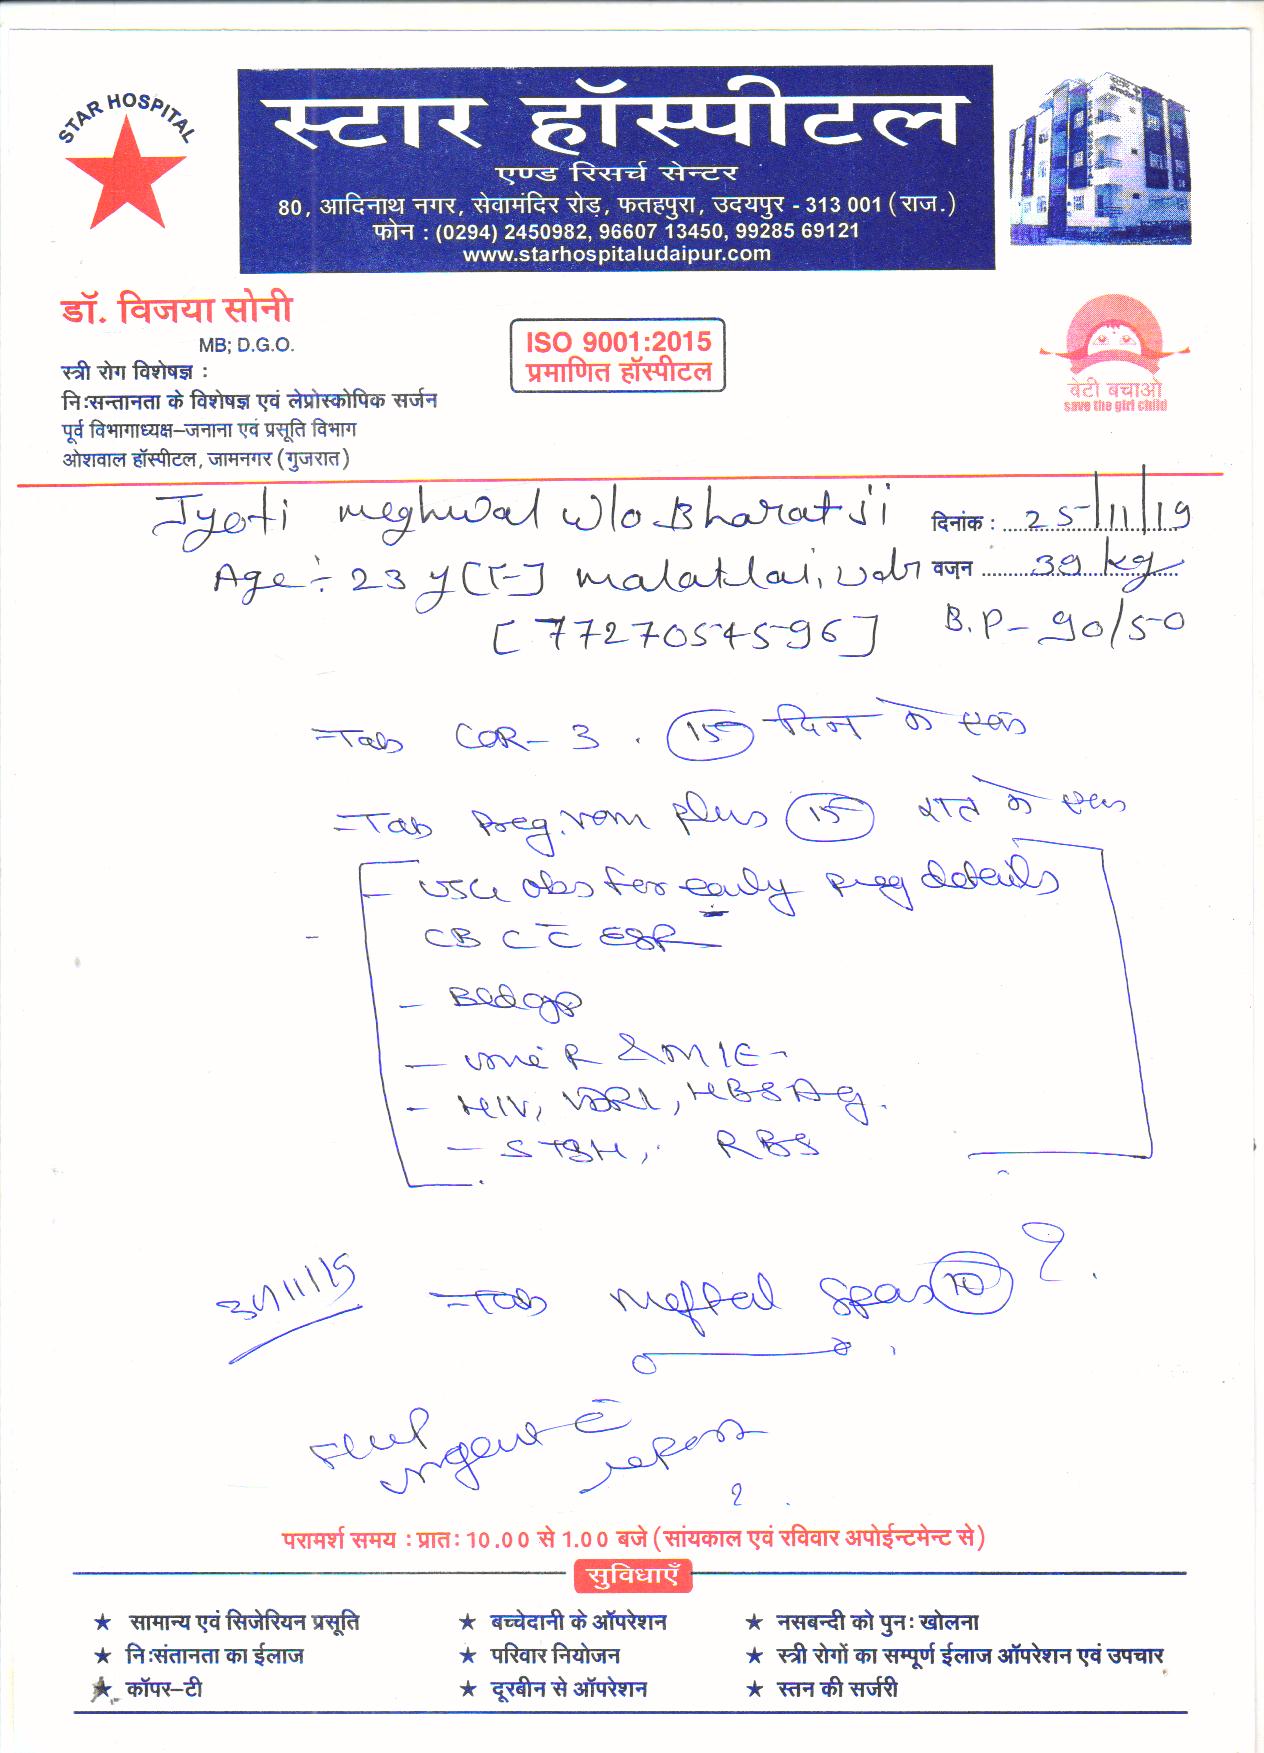 STAR HOSPITAL
स्टार हॉस्पीटल
एण्ड रिसर्च सेन्टर
80, आदिनाथ नगर, सेवामंदिर रोड़, फतहपुरा, उदयपुर - 313 001 (राज.)
फोन : (0294) 2450982, 96607 13450, 99285 69121
www.starhospitaludaipur.com
डॉ. विजया सोनी
MB; D.G.O.
स्त्री रोग विशेषज्ञ :
निःसन्तानता के विशेषज्ञ एवं लेप्रोस्कोपिक सर्जन
पूर्व विभागाध्यक्ष–जनाना एवं प्रसूति विभाग
ओशवाल हॉस्पीटल, जामनगर (गुजरात)
ISO 9001:2015
प्रमाणित हॉस्पीटल
बेटी बचाओ
save the girl child
Jyoti meghwal w/o Bharat Ji दिनांक : 25/11/19
Age :- 23 y [F] malatlai, Udr वज़न 39 kg
[7727054596] B.P - 90/50
Tab COR-3. 15 दिन के एक
Tab Preg. plus 15 रात के एक
- USG obs for early preg details
CBC c̄ ESR
- Bld gp
- R & M/E -
- HIV, VDRL, HBSAg.
- STSH, RBS
Tab meftal Spas 10
urgent c̄
परामर्श समय : प्रातः 10.00 से 1.00 बजे (सांयकाल एवं रविवार अपोईन्टमेन्ट से)
सुविधाएँ
★ सामान्य एवं सिजेरियन प्रसूति ★ बच्चेदानी के ऑपरेशन ★ नसबन्दी को पुनः खोलना
★ निःसंतानता का ईलाज ★ परिवार नियोजन ★ स्त्री रोगों का सम्पूर्ण ईलाज ऑपरेशन एवं उपचार
★ कॉपर–टी ★ दूरबीन से ऑपरेशन ★ स्तन की सर्जरी